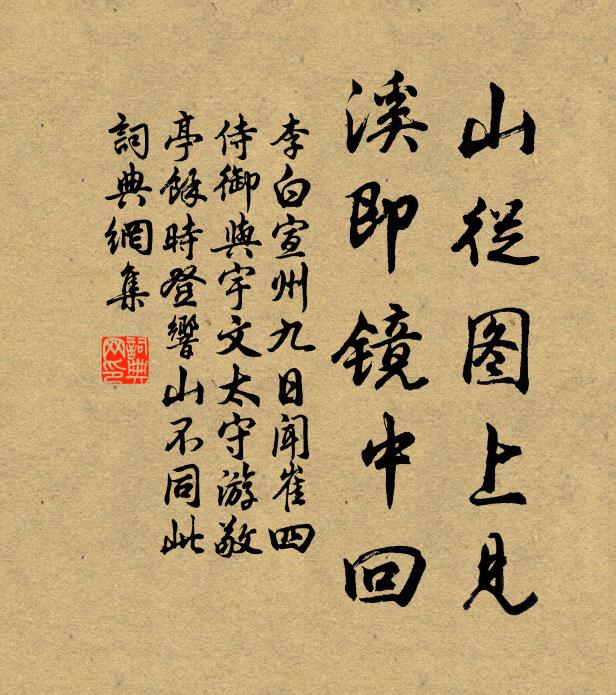 山從图上見
溪即镜中回
李白宣州九日聞崔四
侍御與宇文太守游敬
亭餘時登響山不同此
詞典網集
詞典
网印